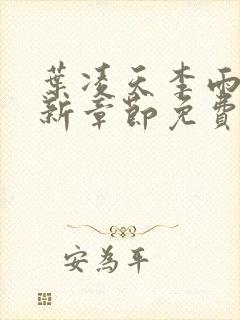 葉凌天李雨
新章節免費
安為平